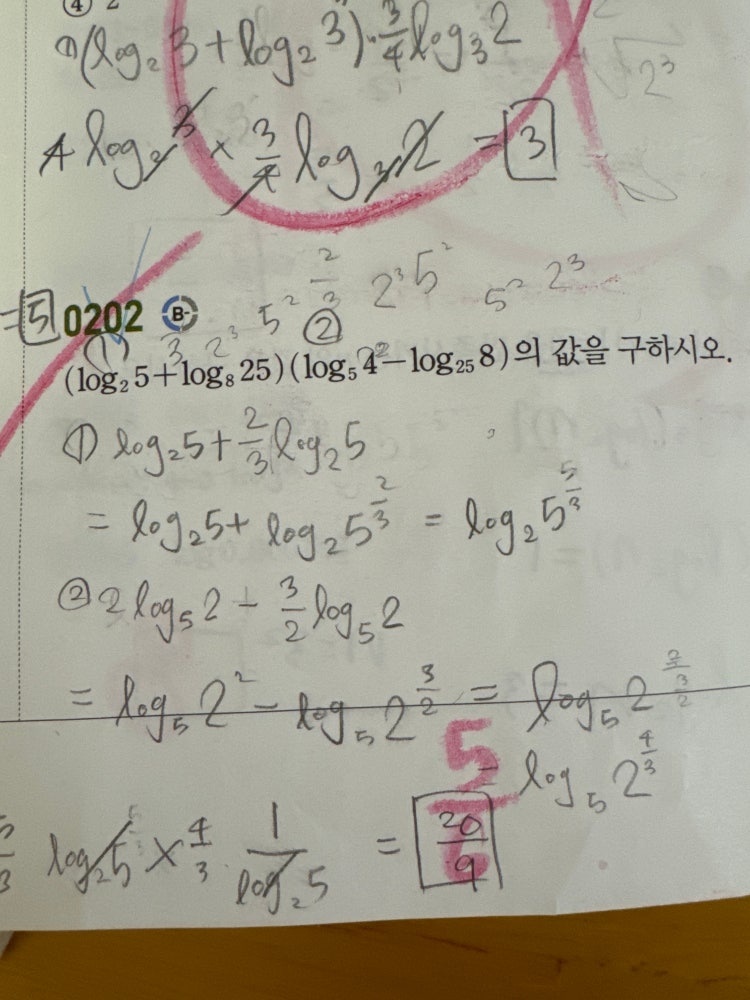 ④ 2
① (log₂3 + log₂3)·3/4 log₃2
2³
4 log₂3 × 3/4 log₃2 = 3
= 5 0202 B-
3 2³ 5² 2/3 2³5² 5² 2³
① ②
(log₂5+log₈25)(log₅4-log₂₅8)의 값을 구하시오.
2²
① log₂5 + 2/3 log₂5
= log₂5 + log₂5^(2/3) = log₂5^(5/3)
② 2 log₅2 - 3/2 log₅2
= log₅2² - log₅2^(3/2) = log₅2^(2/(3/2))
= log₅2^(4/3)
5/3 log₂5 × 4/3 · 1/log₂5 = 20/9
5/6